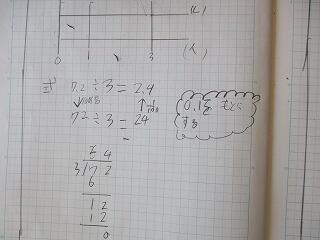 (L)
0 1 3 (人)
式 7.2÷3=2.4
72÷3=24
0.1を もとに
する
24
3)72
6
12
12
0